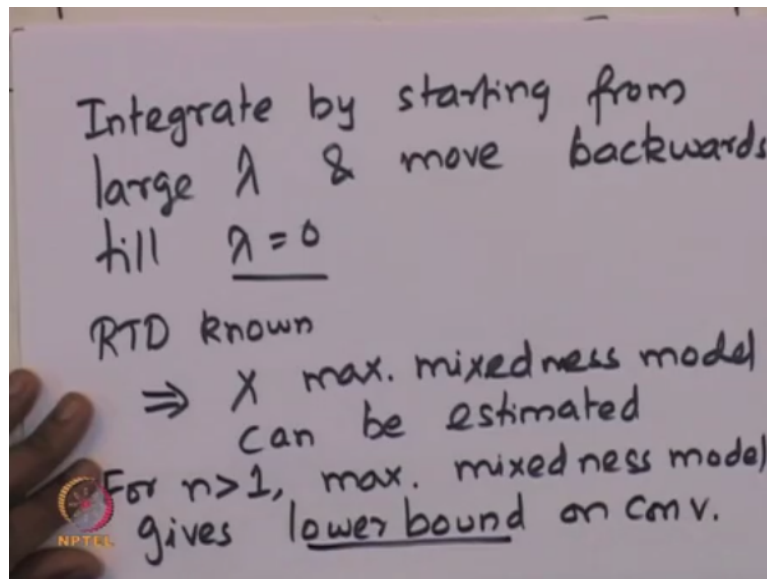 Integrate by starting from
large λ & move backwards
till λ = 0
RTD known
⇒ X max. mixedness model
can be estimated
For n>1, max. mixedness model
gives lower bound on conv.
NPTEL